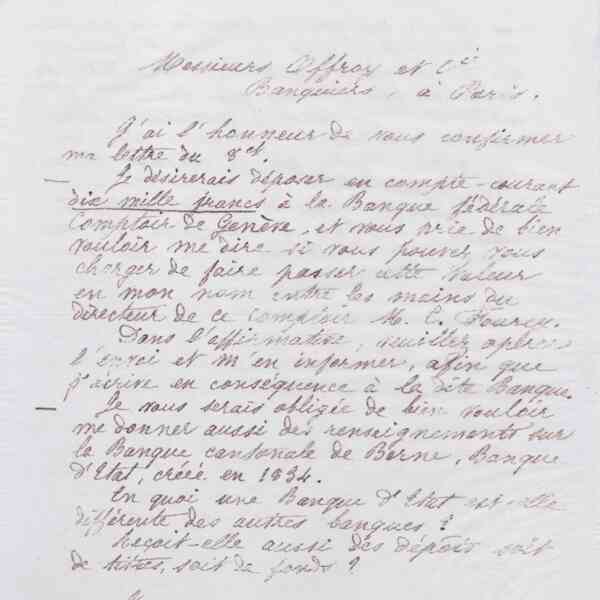 Messieurs Offroy et Cie
Banquiers, à Paris.
J'ai l'honneur de vous confirmer
ma lettre du 8 ct.
Je désirerais déposer en compte-courant
dix mille francs à la Banque fédérale
Comptoir de Genève, et vous prie de bien
vouloir me dire si vous pouvez vous
charger de faire passer cette valeur
en mon nom entre les mains du
directeur de ce comptoir M. C. Fourcy.
Dans l'affirmative, veuillez opérer
l'envoi et m'en informer, afin que
j'écrive en conséquence à la dite Banque.
Je vous serais obligée de bien vouloir
me donner aussi des renseignements sur
la Banque cantonale de Berne, Banque
d'Etat, créée en 1834.
En quoi une Banque d'Etat est-elle
différente des autres banques ?
Reçoit-elle aussi des dépôts soit
de titres, soit de fonds ?